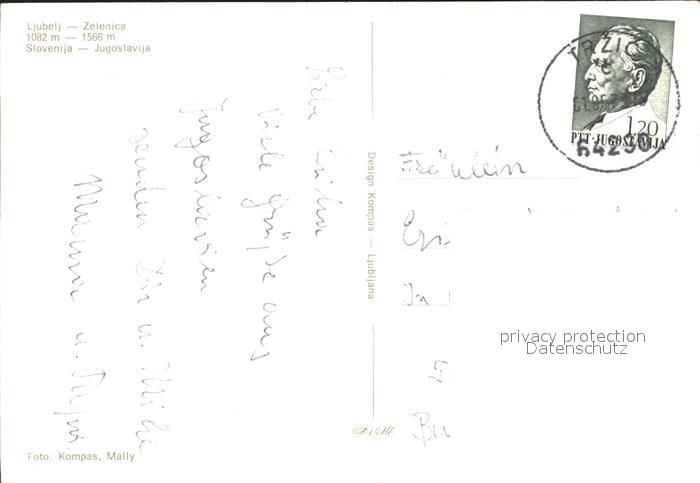 Ljubelj — Zelenica
1082 m — 1566 m
Slovenija — Jugoslavija
Liebe Erika
viele Grüße aus
Jugoslavien
senden Dir u.
Mama u.
Design Kompas — Ljubljana
TRŽIČ
64290
1,20
PTT·JUGOSLAVIJA
Fräulein
privacy protection
Datenschutz
Foto: Kompas, Mally